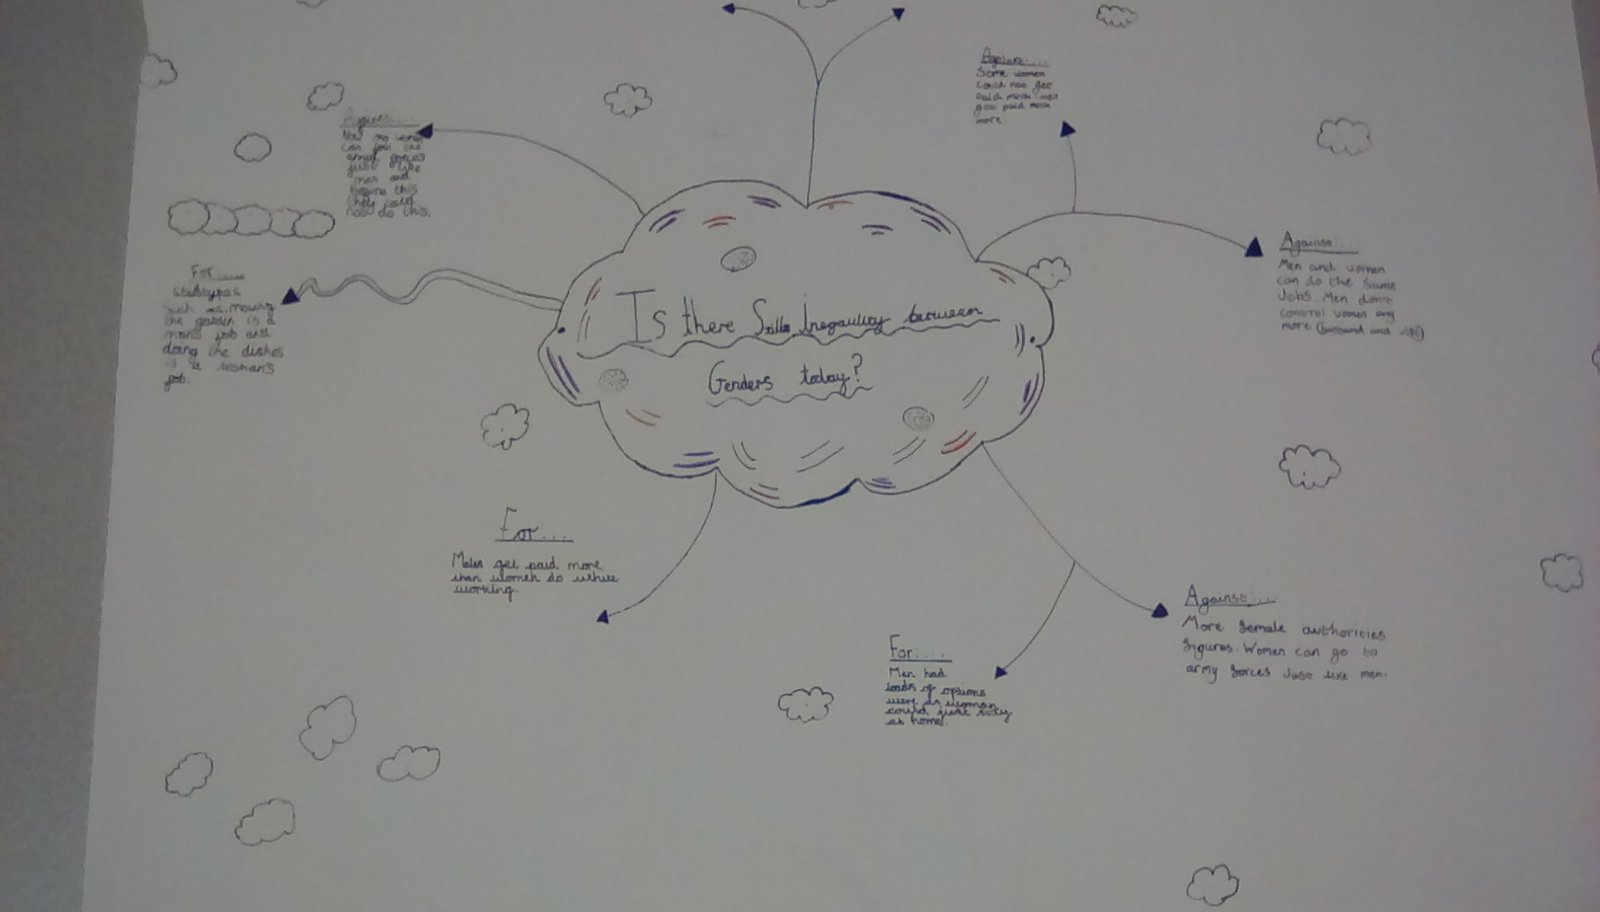 Is there Still Inequality between
Genders today?
Against....
Now no women
can join the
armed forces
just like
men and
before this
they could
not do this.
For....
such as mowing
the garden is a
mans job and
doing the dishes
is a woman's
job.
For....
Males get paid more
than women do while
working.
For.....
Men had
loads of options
were as woman
could just stay
at home.
Against....
More female authorities
figures. Women can go to
army forces Just like men.
Against....
Men and women
can do the same
Jobs. Men dont
control women any
more (husband and wife)
Against....
Some women
could not get
paid much men
got paid much
more